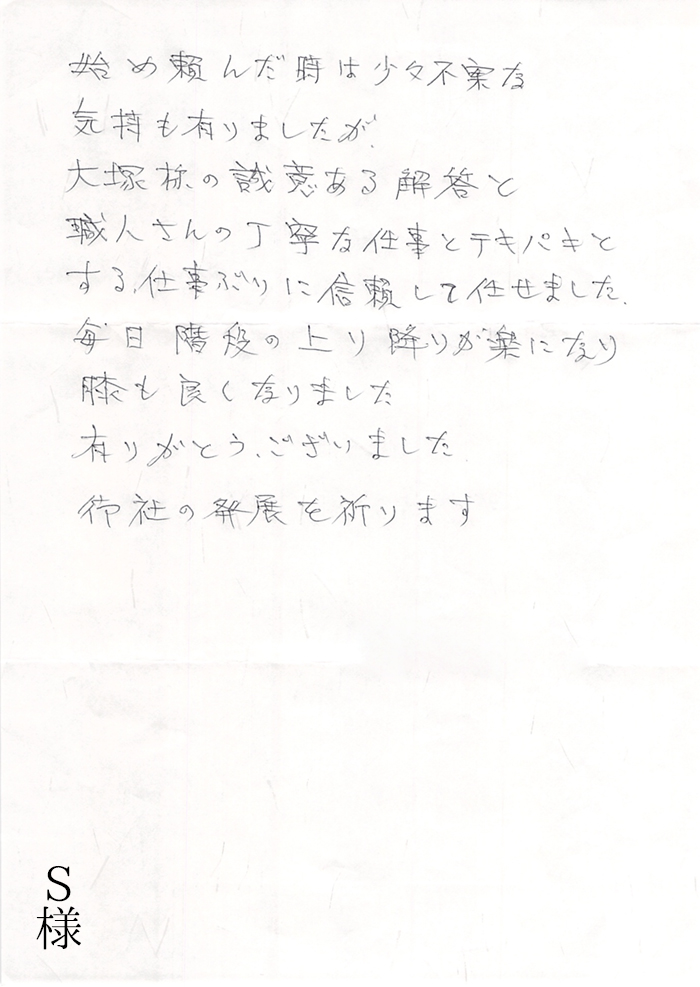 始め頼んだ時は少々不案な
気持も有りましたが、
大塚様の誠意ある解答と
職人さんの丁寧な仕事とテキパキと
する、仕事ぶりに信頼して任せました、
毎日階段の上り降りが楽になり
膝も良くなりました
有りがとう、ございました
御社の発展を祈ります
S様